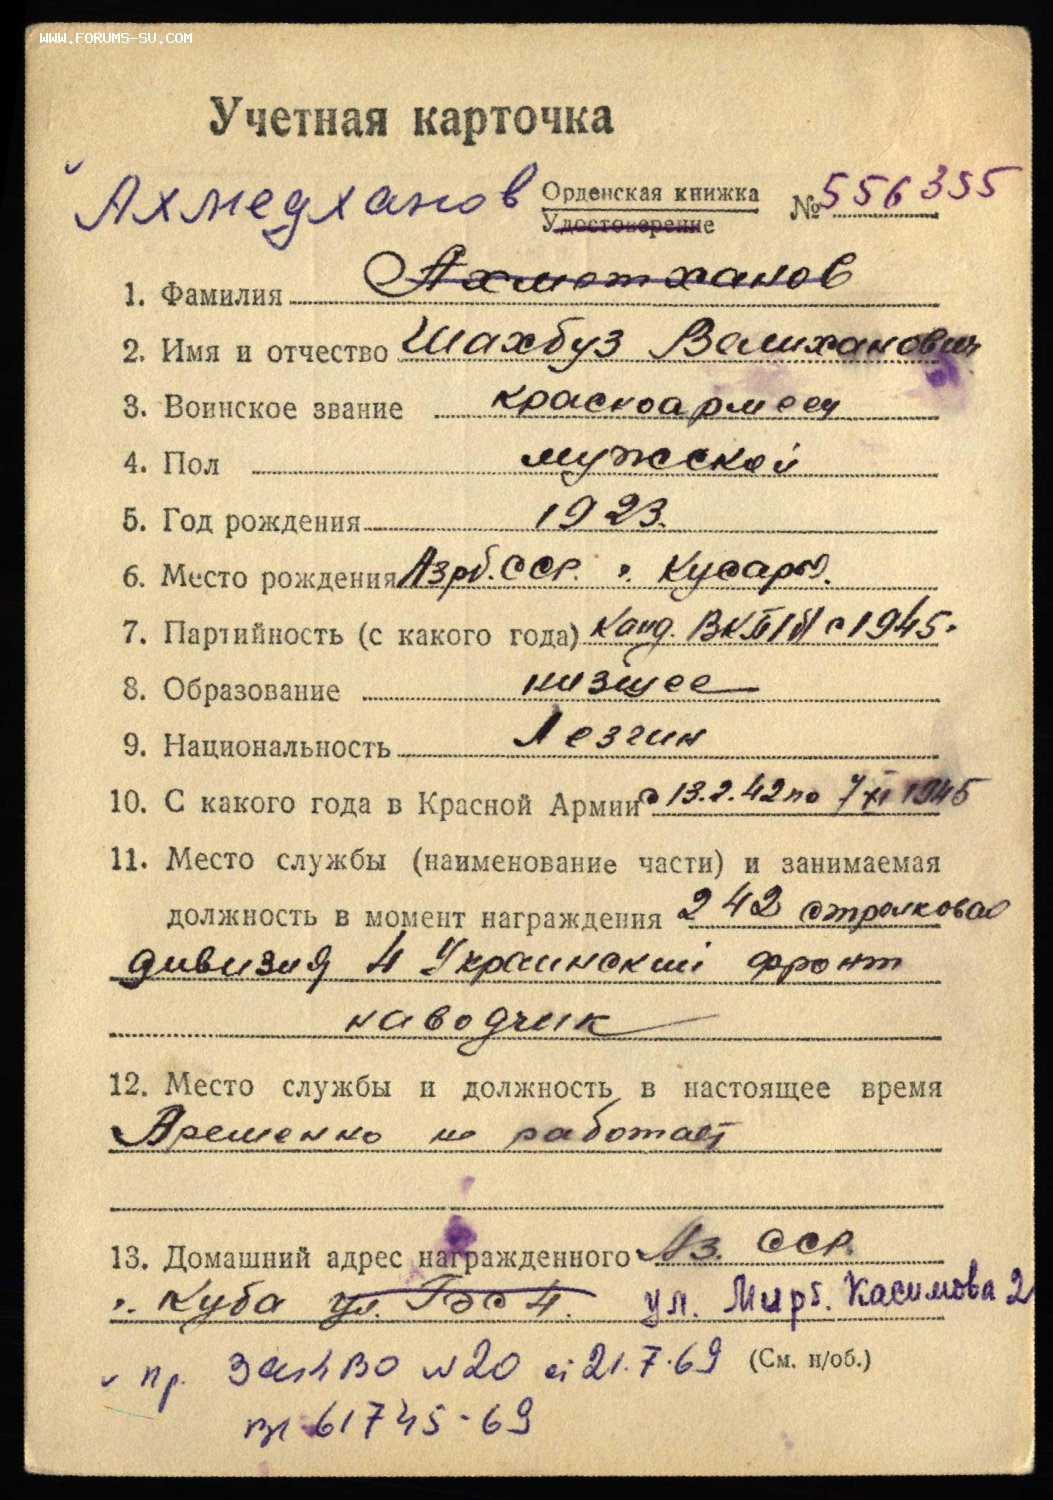 WWW.FORUMS-SU.COM
Учетная карточка
Ахмедханов
Орденская книжка № 556355
Удостоверение
1. Фамилия Ахметханов
2. Имя и отчество Шахбуз Велиханович
3. Воинское звание красноармеец
4. Пол мужской
5. Год рождения 1923.
6. Место рождения Азрб. ССР. г. Кусары.
7. Партийность (с какого года) Канд. ВКП/б/ с 1945.
8. Образование низшее
9. Национальность Лезгин
10. С какого года в Красной Армии с 13.2.42 по 7 XI 1945
11. Место службы (наименование части) и занимаемая
должность в момент награждения 242 стрелковая
дивизия 4 Украинский фронт
наводчик
12. Место службы и должность в настоящее время
Временно не работает
13. Домашний адрес награжденного Аз. ССР.
г. Куба ул. Гэс 4. ул. Мирб. Касимова 2
(См. н/об.)
пр. ЗакВО №20 от 21.7.69
вх 61745-69